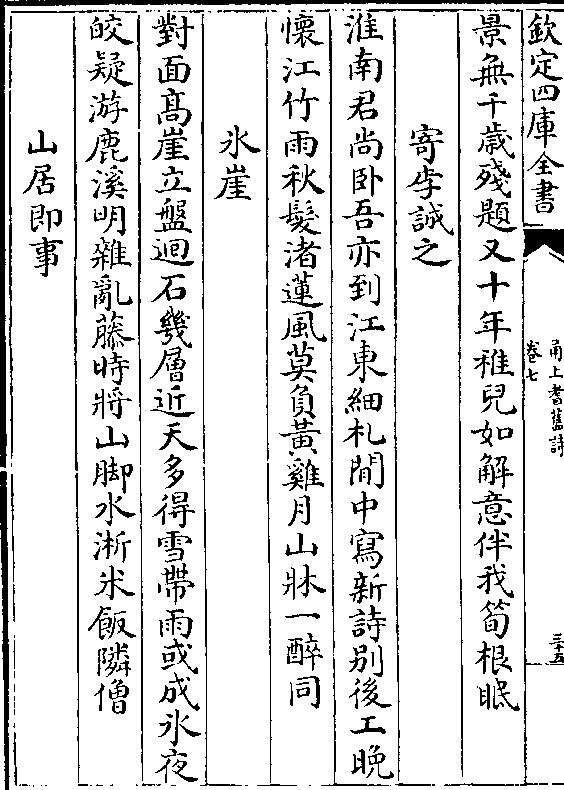 欽定四庫全書
甬上耆舊詩
卷七
三十五
景無千歲殘題又十年稚兒如解意伴我筍根眠
寄李誠之
淮南君尚卧吾亦到江東細札閒中寫新詩别後工晩
懷江竹雨秋髮渚蓮風莫負黄雞月山牀一醉同
氷崖
對面髙崖立盤迴石幾層近天多得雪帶雨或成氷夜
皎疑游鹿溪明雜亂藤時將山脚水淅米飯隣僧
山居即事